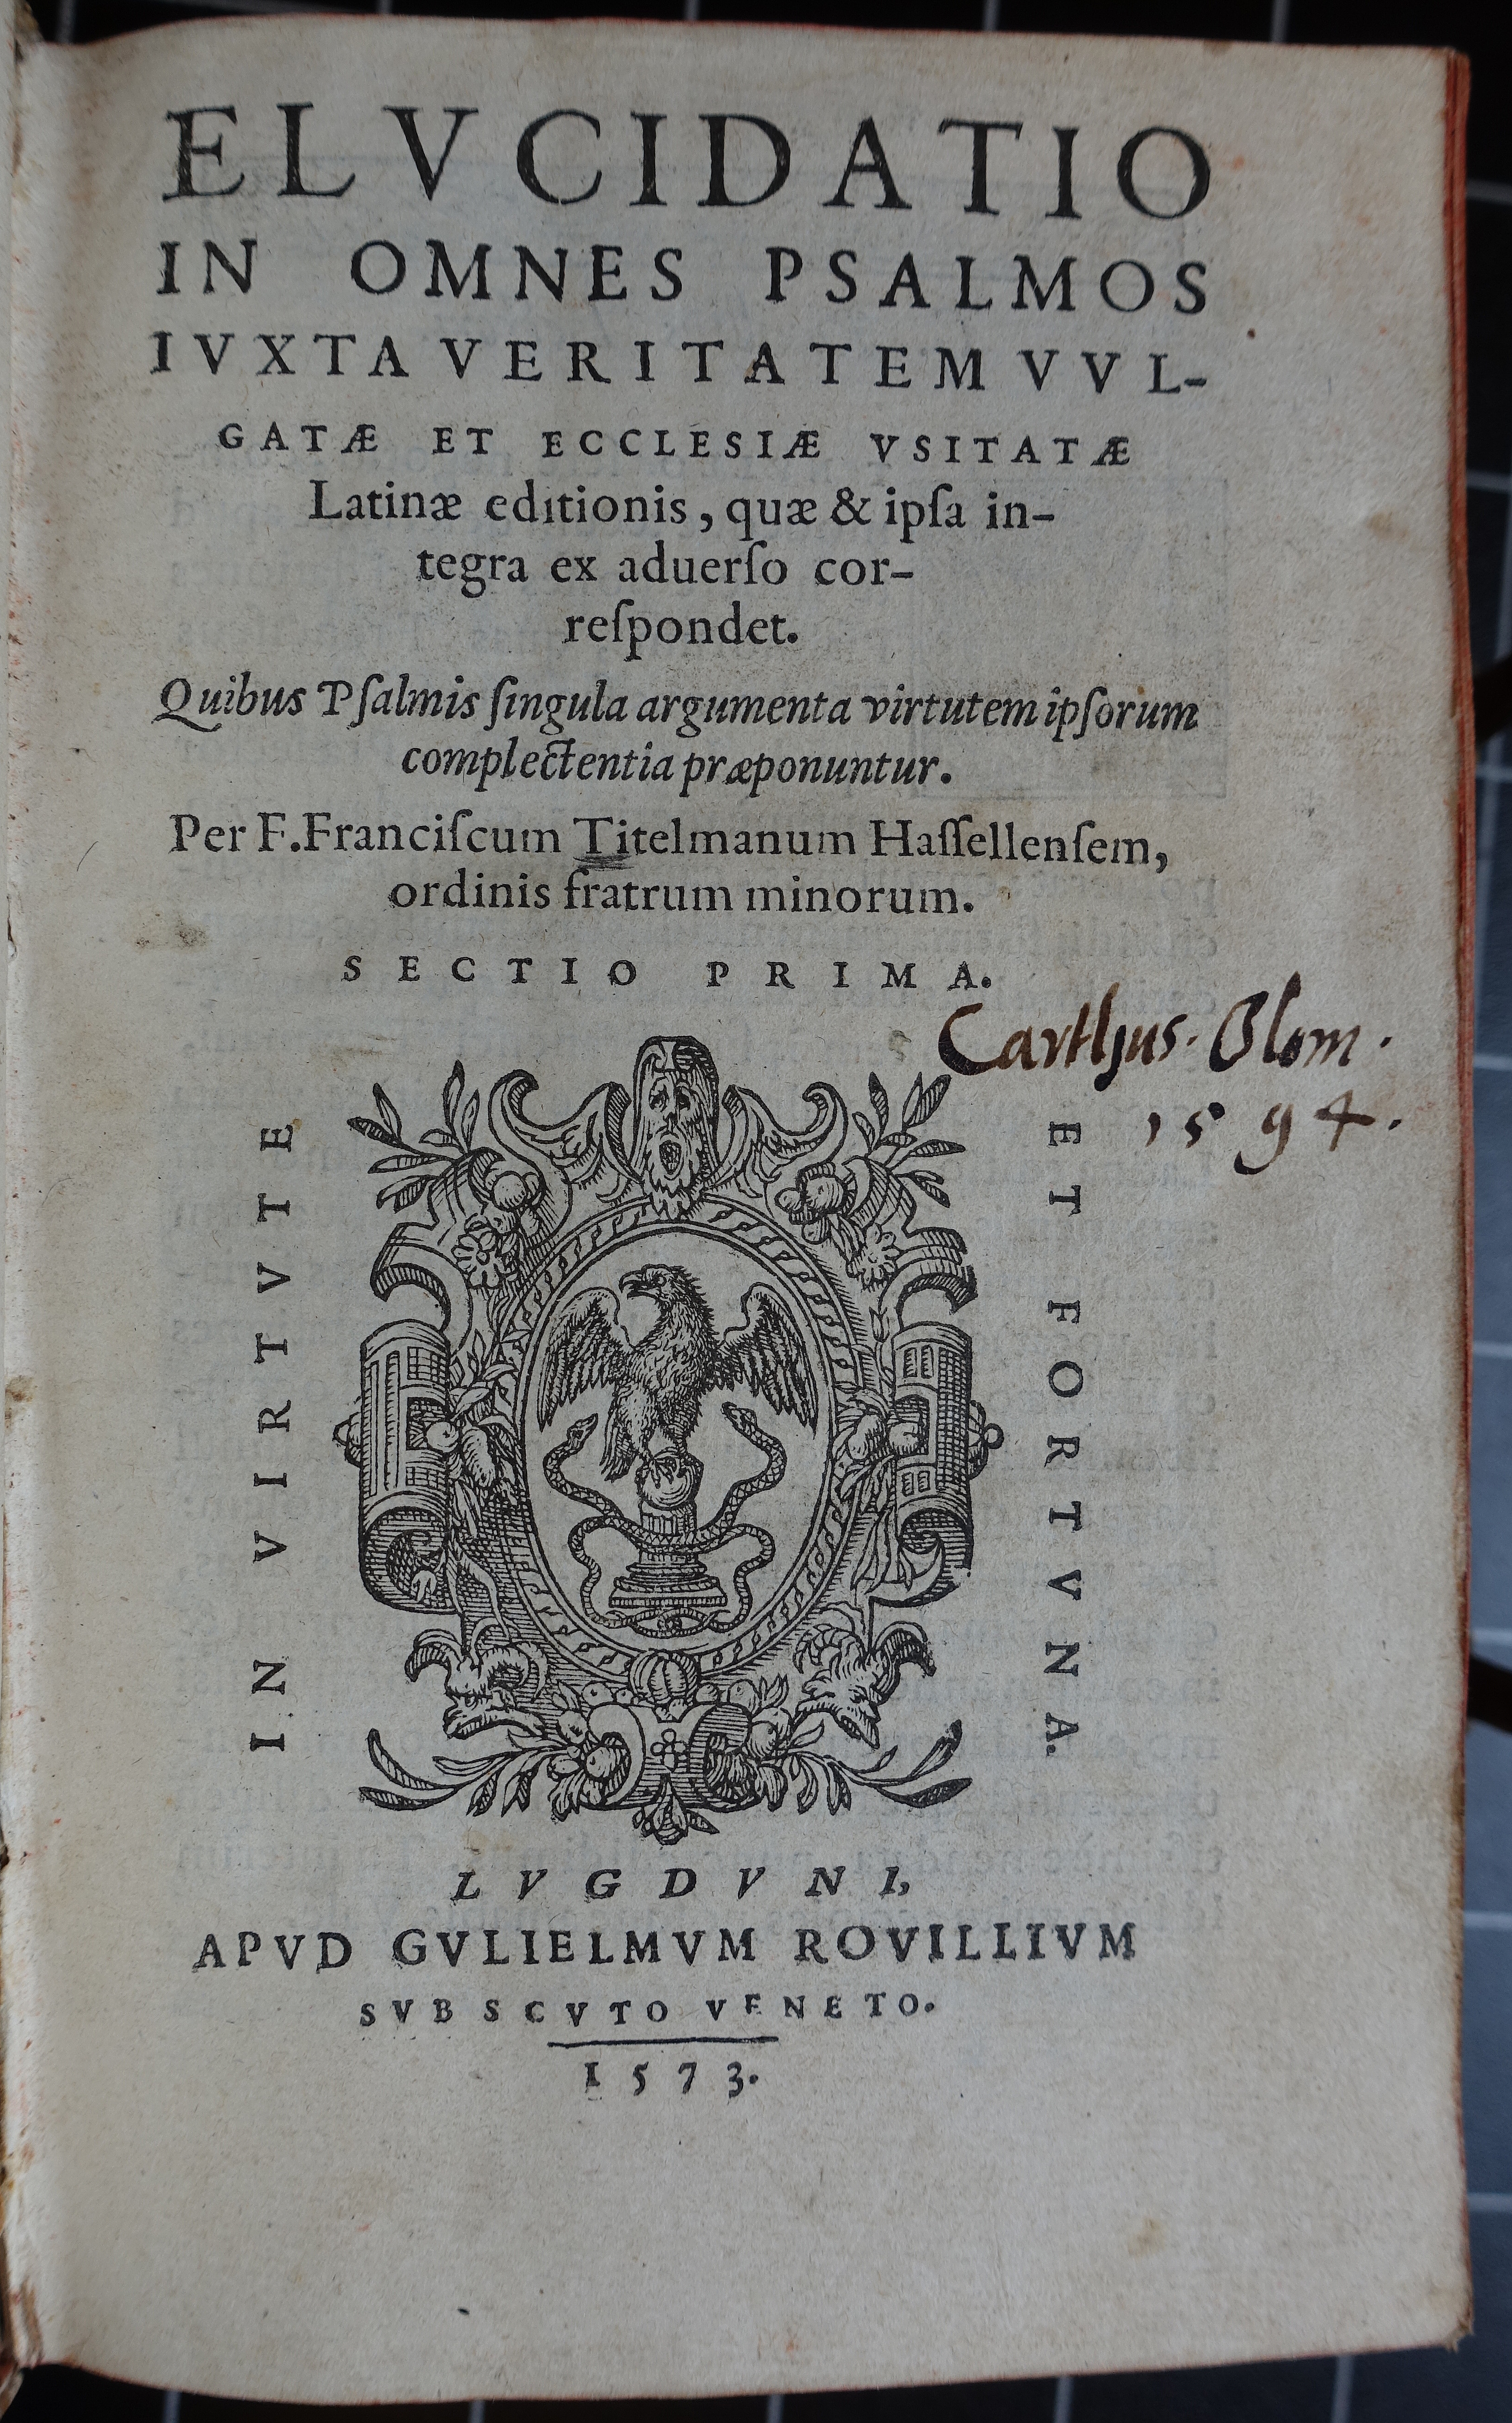 ELVCIDATIO
IN OMNES PSALMOS
IVXTA VERITATEM VVL-
GATÆ ET ECCLESIÆ VSITATÆ
Latinæ editionis, quæ & ipſa in-
tegra ex aduerſo cor-
reſpondet.
Quibus Pſalmis ſingula argumenta virtutem ipſorum
complectentia præponuntur.
Per F. Franciſcum Titelmanum Haſſellenſem,
ordinis fratrum minorum.
SECTIO PRIMA.
Carthus. Olom.
1594.
IN VIRTVTE
ET FORTVNA.
LVGDVNI,
APVD GVLIELMVM ROVILLIVM
SVB SCVTO VENETO.
1573.